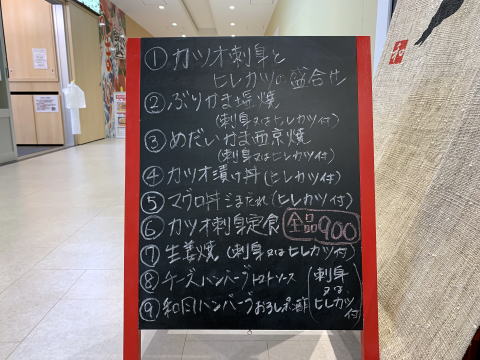 ① カツオ刺身と
ヒレカツの盛合せ
② ぶりかま塩焼
(刺身又はヒレカツ付)
③ めだいかま西京焼
(刺身又はヒレカツ付)
④ カツオ漬け丼(ヒレカツ付)
⑤ マグロ丼ごまだれ(ヒレカツ付)
⑥ カツオ刺身定食 全品900
⑦ 生姜焼(刺身又はヒレカツ付)
⑧ チーズハンバーグトマトソース
⑨ 和風ハンバーグおろしポン酢
(刺身
又は
ヒレカツ
付)
和